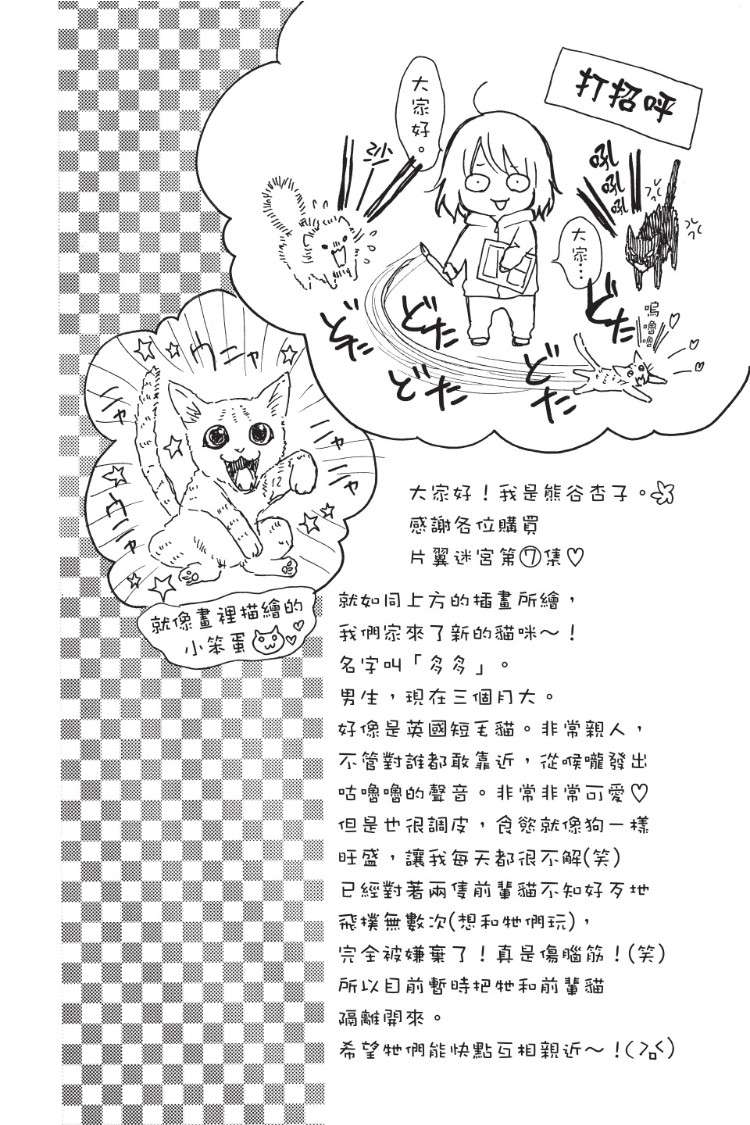 打招呼
大家好。
沙
吼
吼
吼
大家…
嗚嚕嚕
どた
どた
どた
どた
どた
どた
ウニャ
ニャ
ニャ
ニャ
ウニャ
就像畫裡描繪的
小笨蛋
大家好！我是熊谷杏子。
感謝各位購買
片翼迷宮第⑦集♡
就如同上方的插畫所繪，
我們家來了新的貓咪～！
名字叫「多多」。
男生，現在三個月大。
好像是英國短毛貓。非常親人，
不管對誰都敢靠近，從喉嚨發出
咕嚕嚕的聲音。非常非常可愛♡
但是也很調皮，食慾就像狗一樣
旺盛，讓我每天都很不解(笑)
已經對著兩隻前輩貓不知好歹地
飛撲無數次(想和牠們玩)，
完全被嫌棄了！真是傷腦筋！(笑)
所以目前暫時把牠和前輩貓
隔離開來。
希望牠們能快點互相親近～！